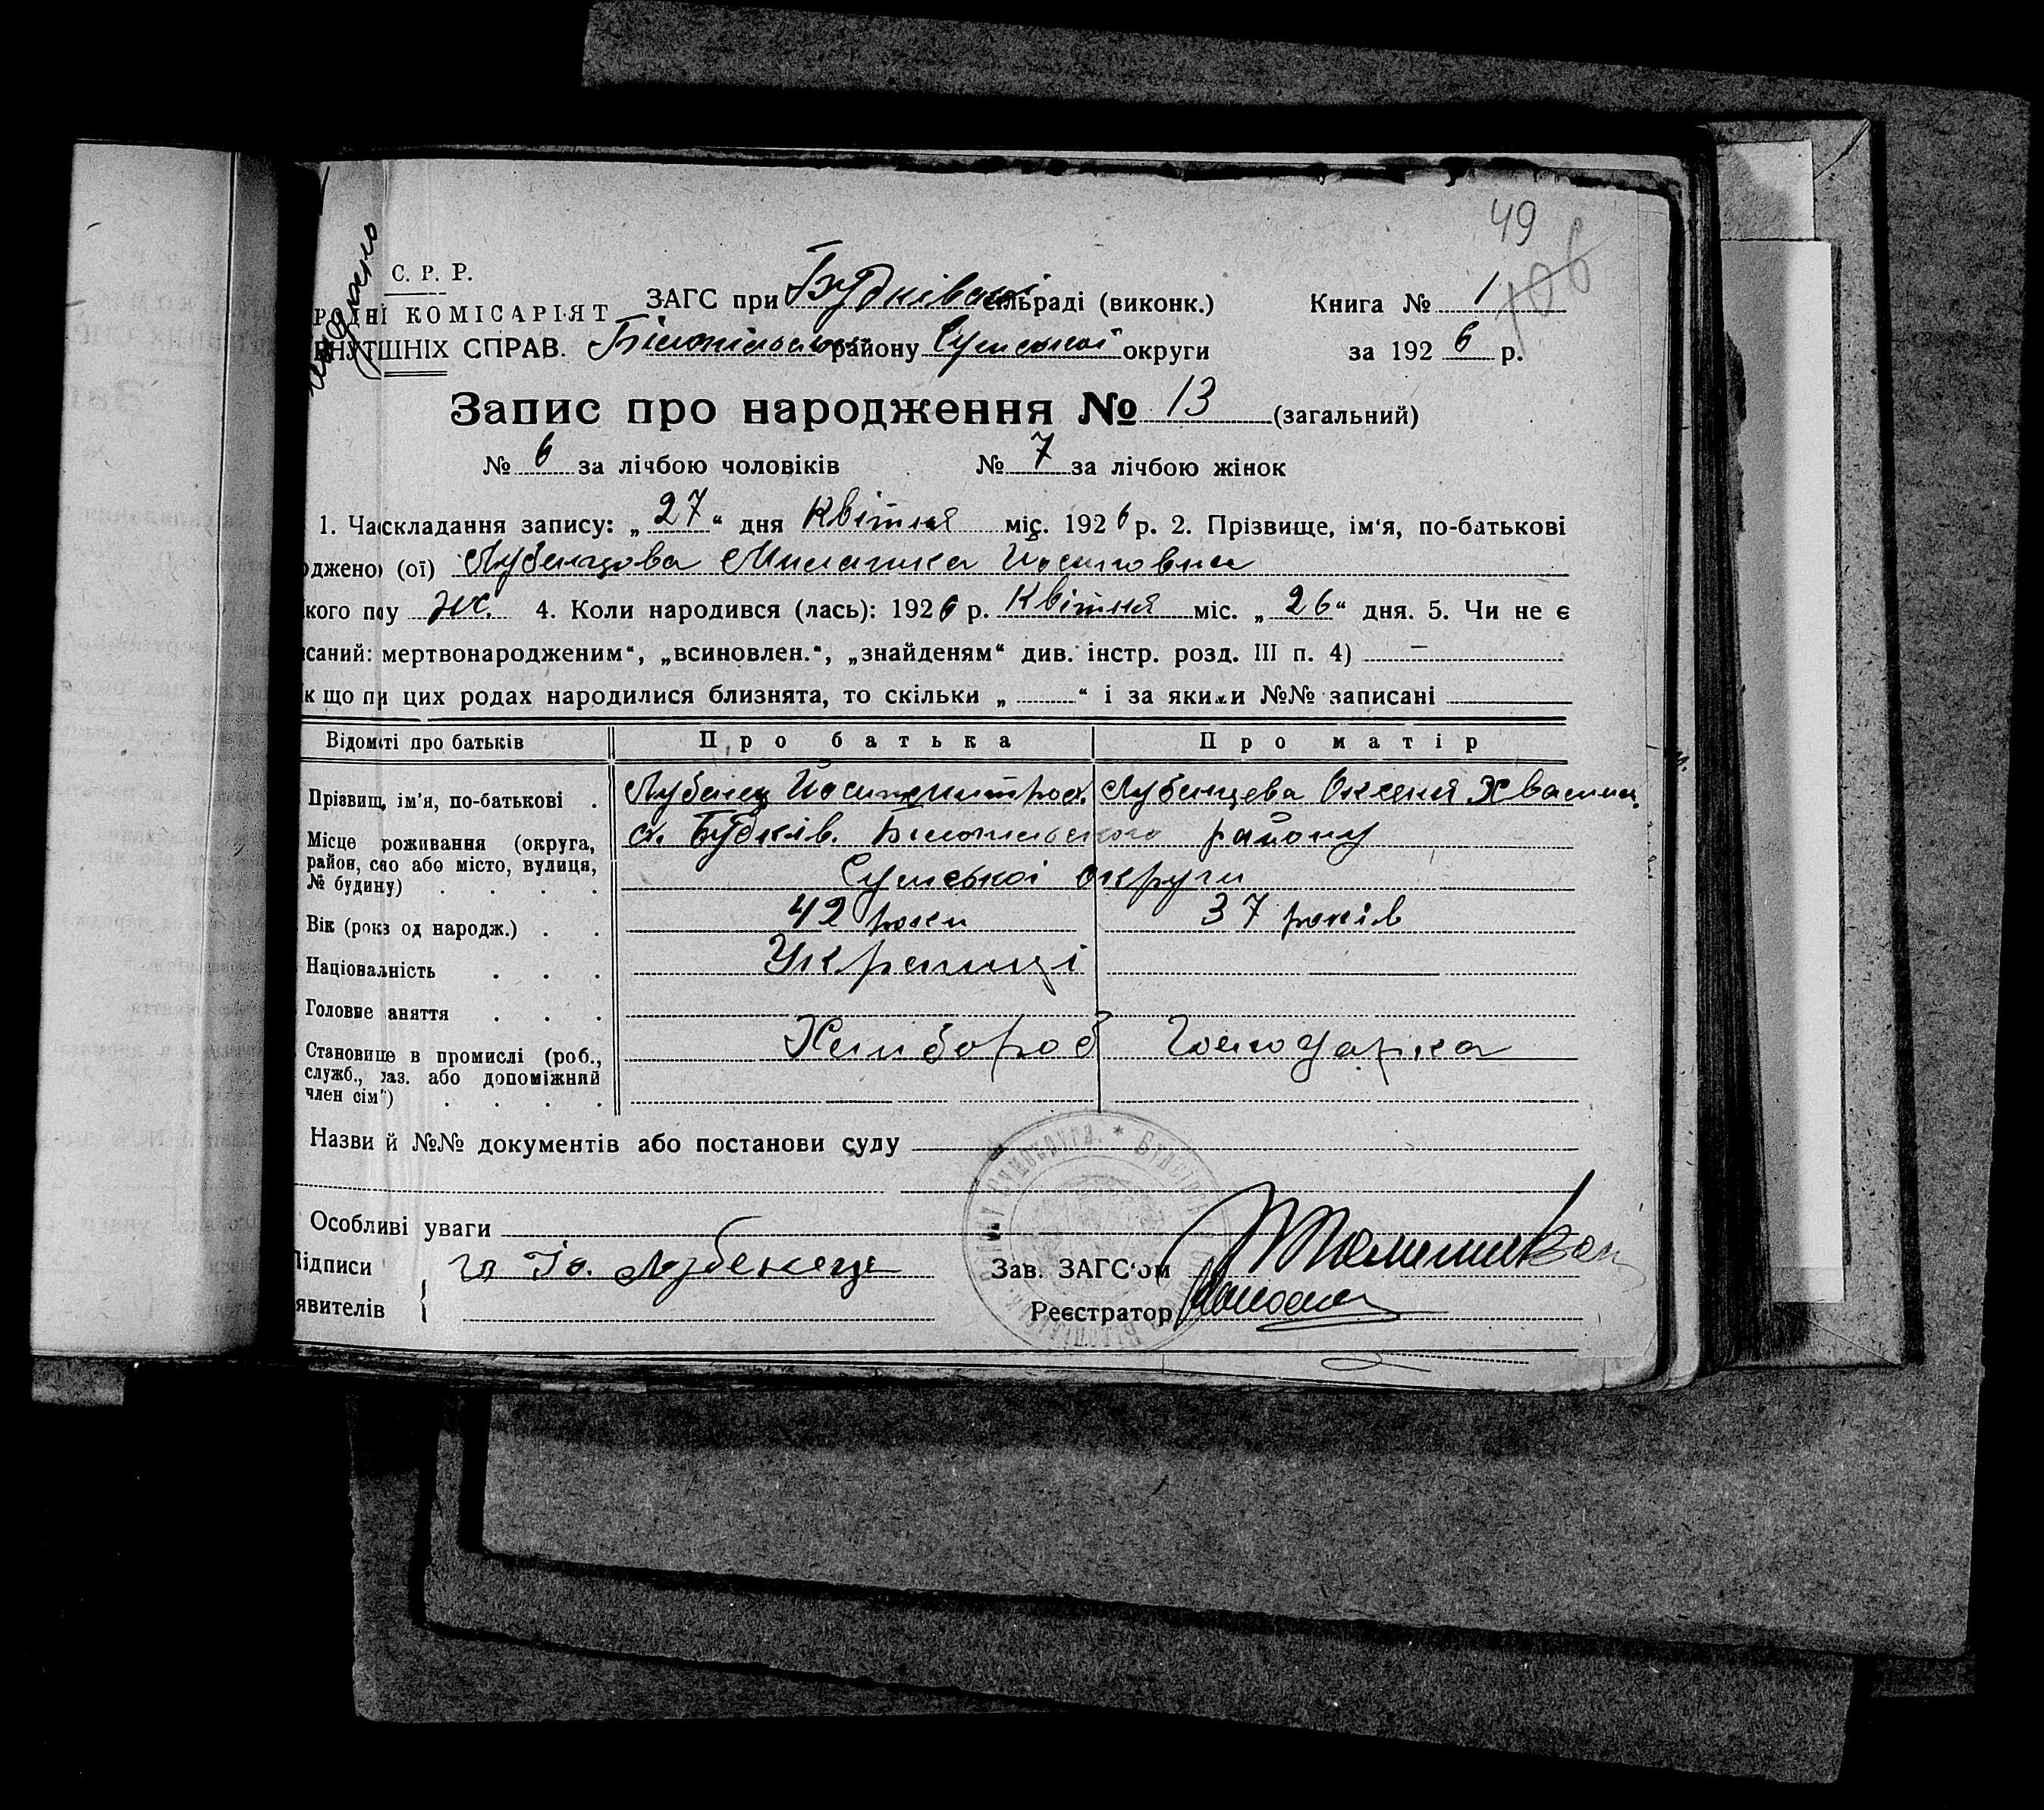 49
106
С. Р. Р.
ЗАГС при Будківській сільраді (виконк.) Книга № 1
КОМІСАРІЯТ
ВНУТІШНІХ СПРАВ. Білопільського району Сумської округи за 1926 р.
Запис про народження № 13 (загальний)
№ 6 за лічбою чоловіків № 7 за лічбою жінок
1. Час складання запису: „27“ дня Квітня міс. 1926 р. 2. Прізвище, ім‘я, по-батькові
(ої) Лубенцова Миланка Йосиповна
ж. 4. Коли народився (лась): 1926 р. Квітня міс. „26“ дня. 5. Чи не є
саний: мертвонародженим“, „всиновлен.“, „знайденям“ див. інстр. розд. III п. 4) —
к що при цих родах народилися близнята, то скільки „ “ і за якими №№ записані
Відомості про батьків Про батька Про матір
Прізвищ, ім'я, по-батькові . Лубенец Йосип Митроф. Лубенцева Оксеня Хвасили.
Місце роживання (округа, с. Будків. Білопільського району
район, село або місто, вулиця,
№ будину) . . . . Сумської округи
Вік (рокв од народж.) . . 42 роки 37 років
Національність . . . Українці
Головне аняття . . .
Становище в промислі (роб., Хлибороб Господарка
служб., хаз. або допоміжний
член сім') . . . .
Назви й №№ документів або постанови суду
Особливі уваги
Підписи Іо. Лубенець Зав. ЗАГС‘ом
явителів Реєстратор